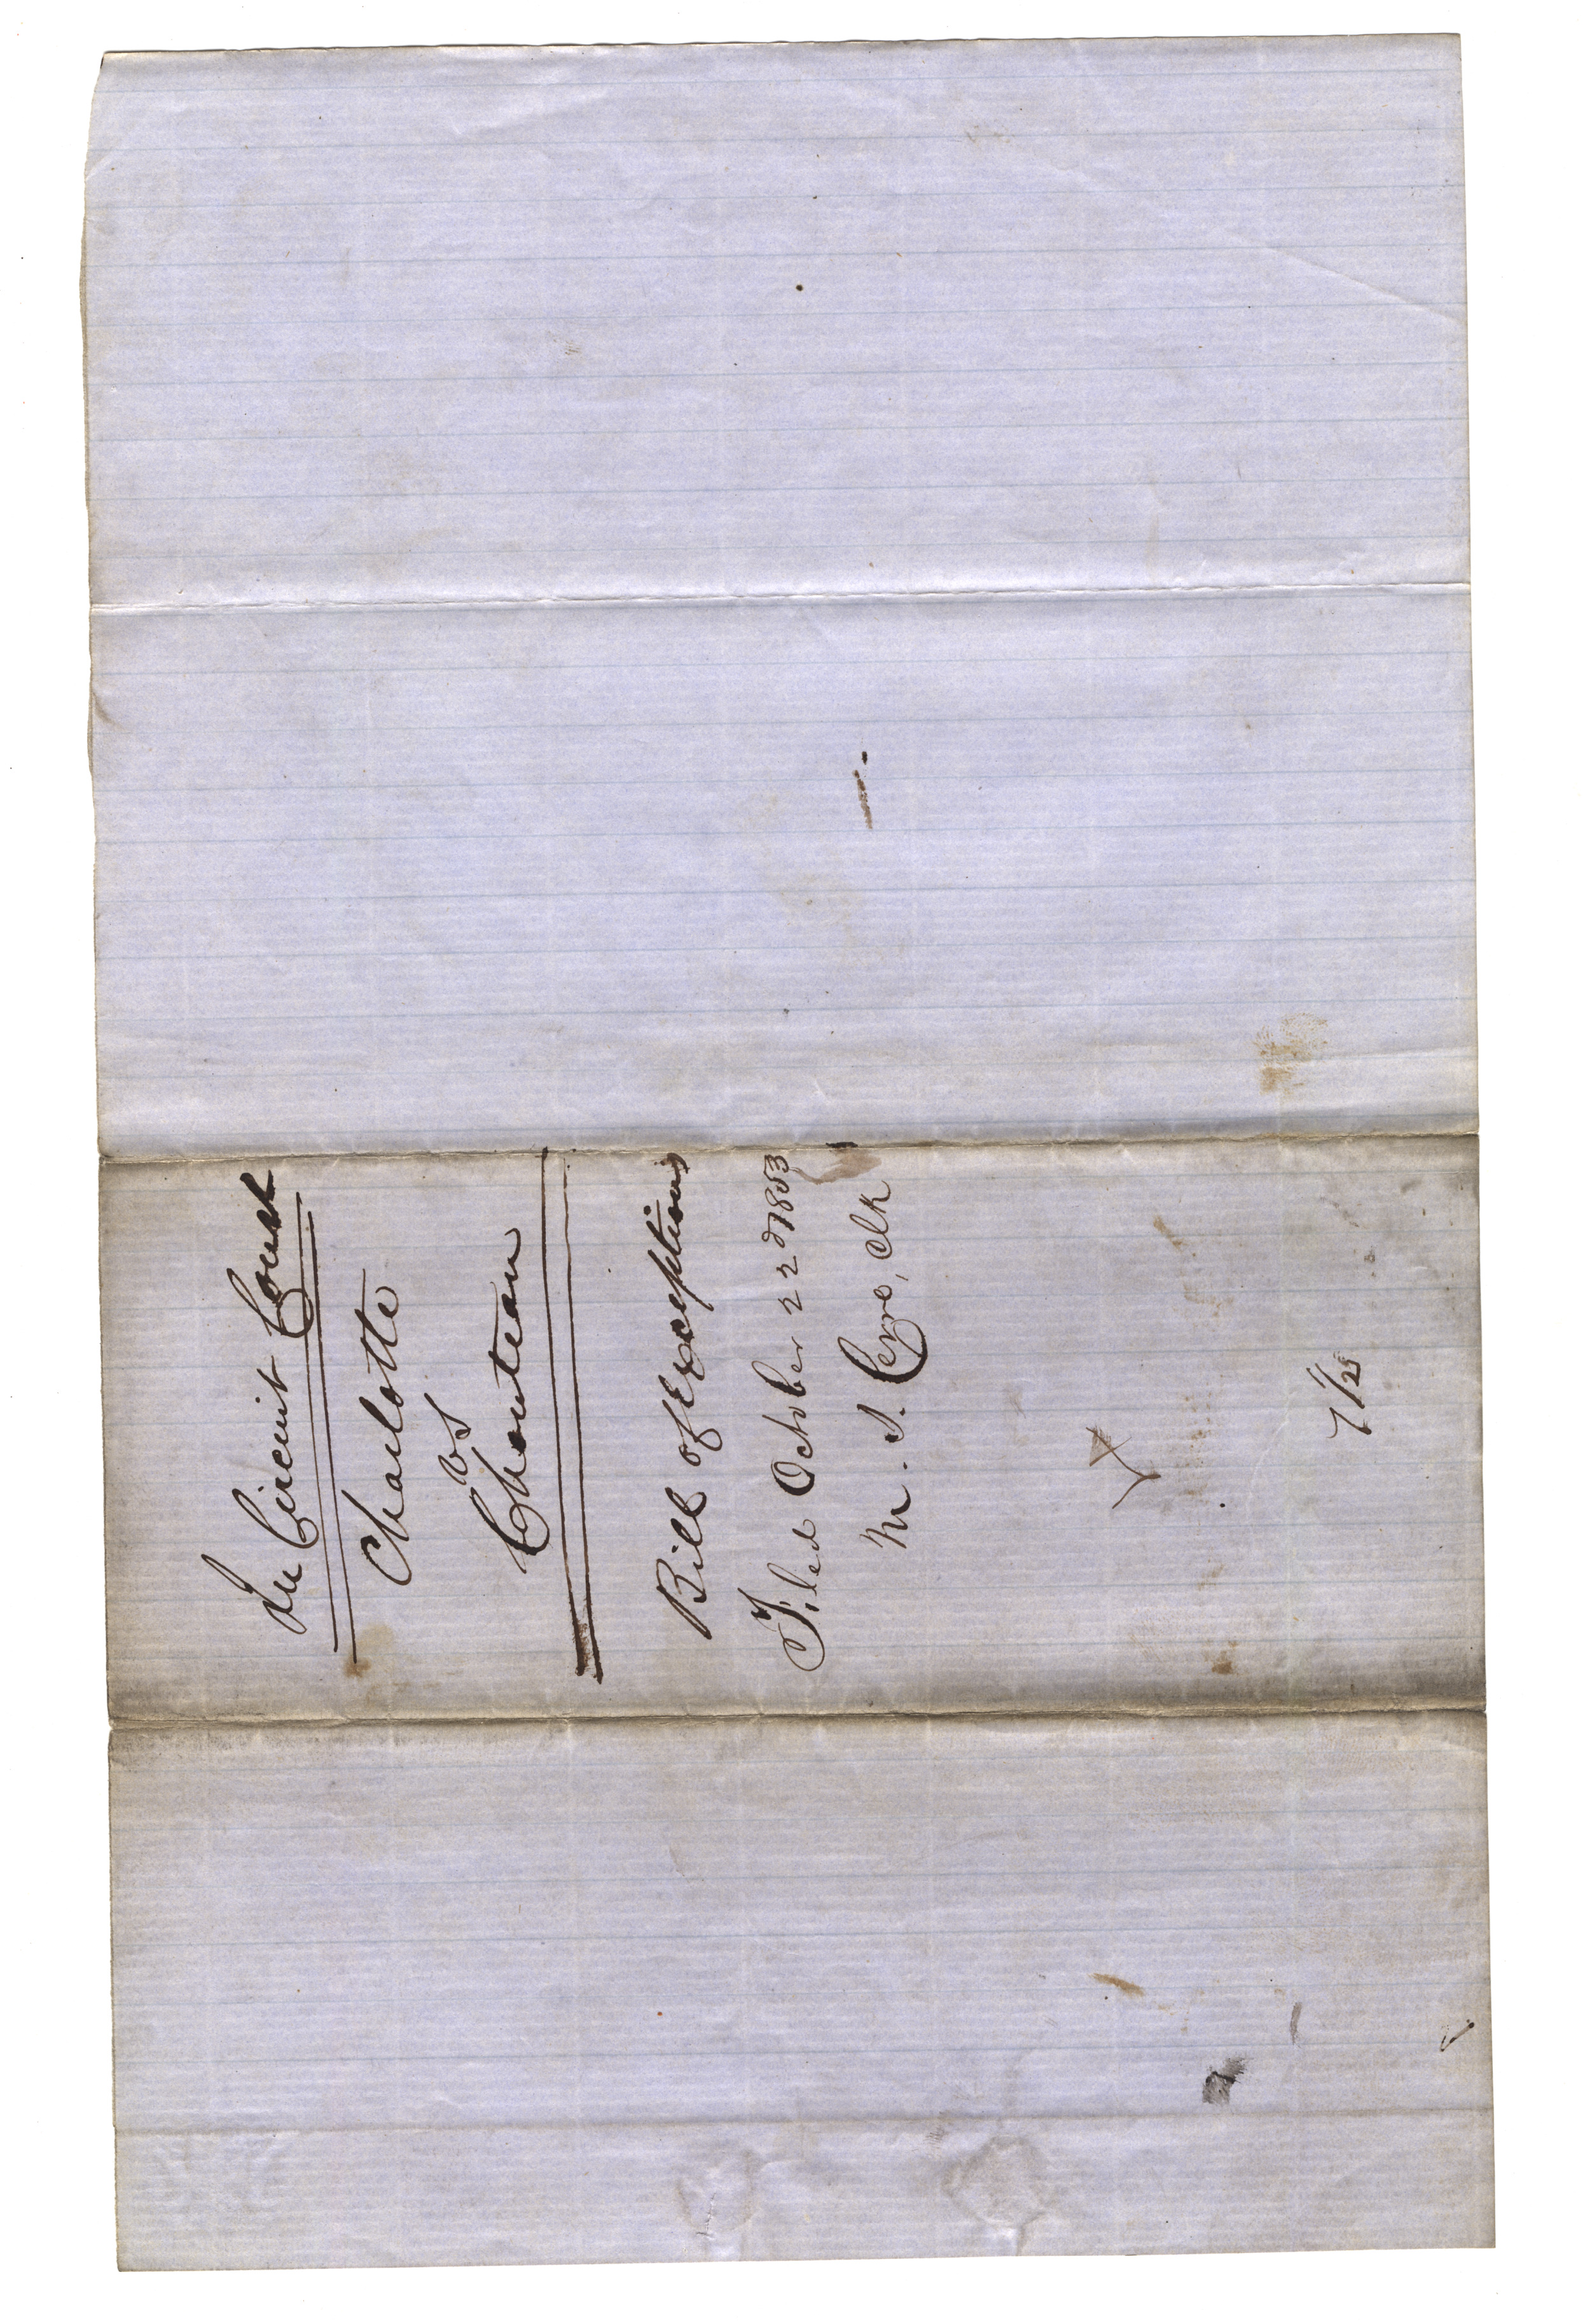 In Circuit Court
Charlotte
vs
Chouteau
Bill of Exceptions
Filed October 22d 1853
M. S. Cerré, Clk